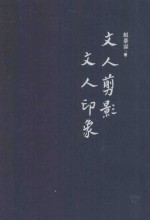 文人剪影
文人印象